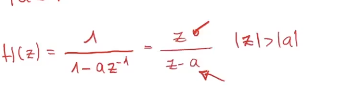 H(z) = 1 / (1 - az⁻¹) = z / (z - a) |z| > |a|